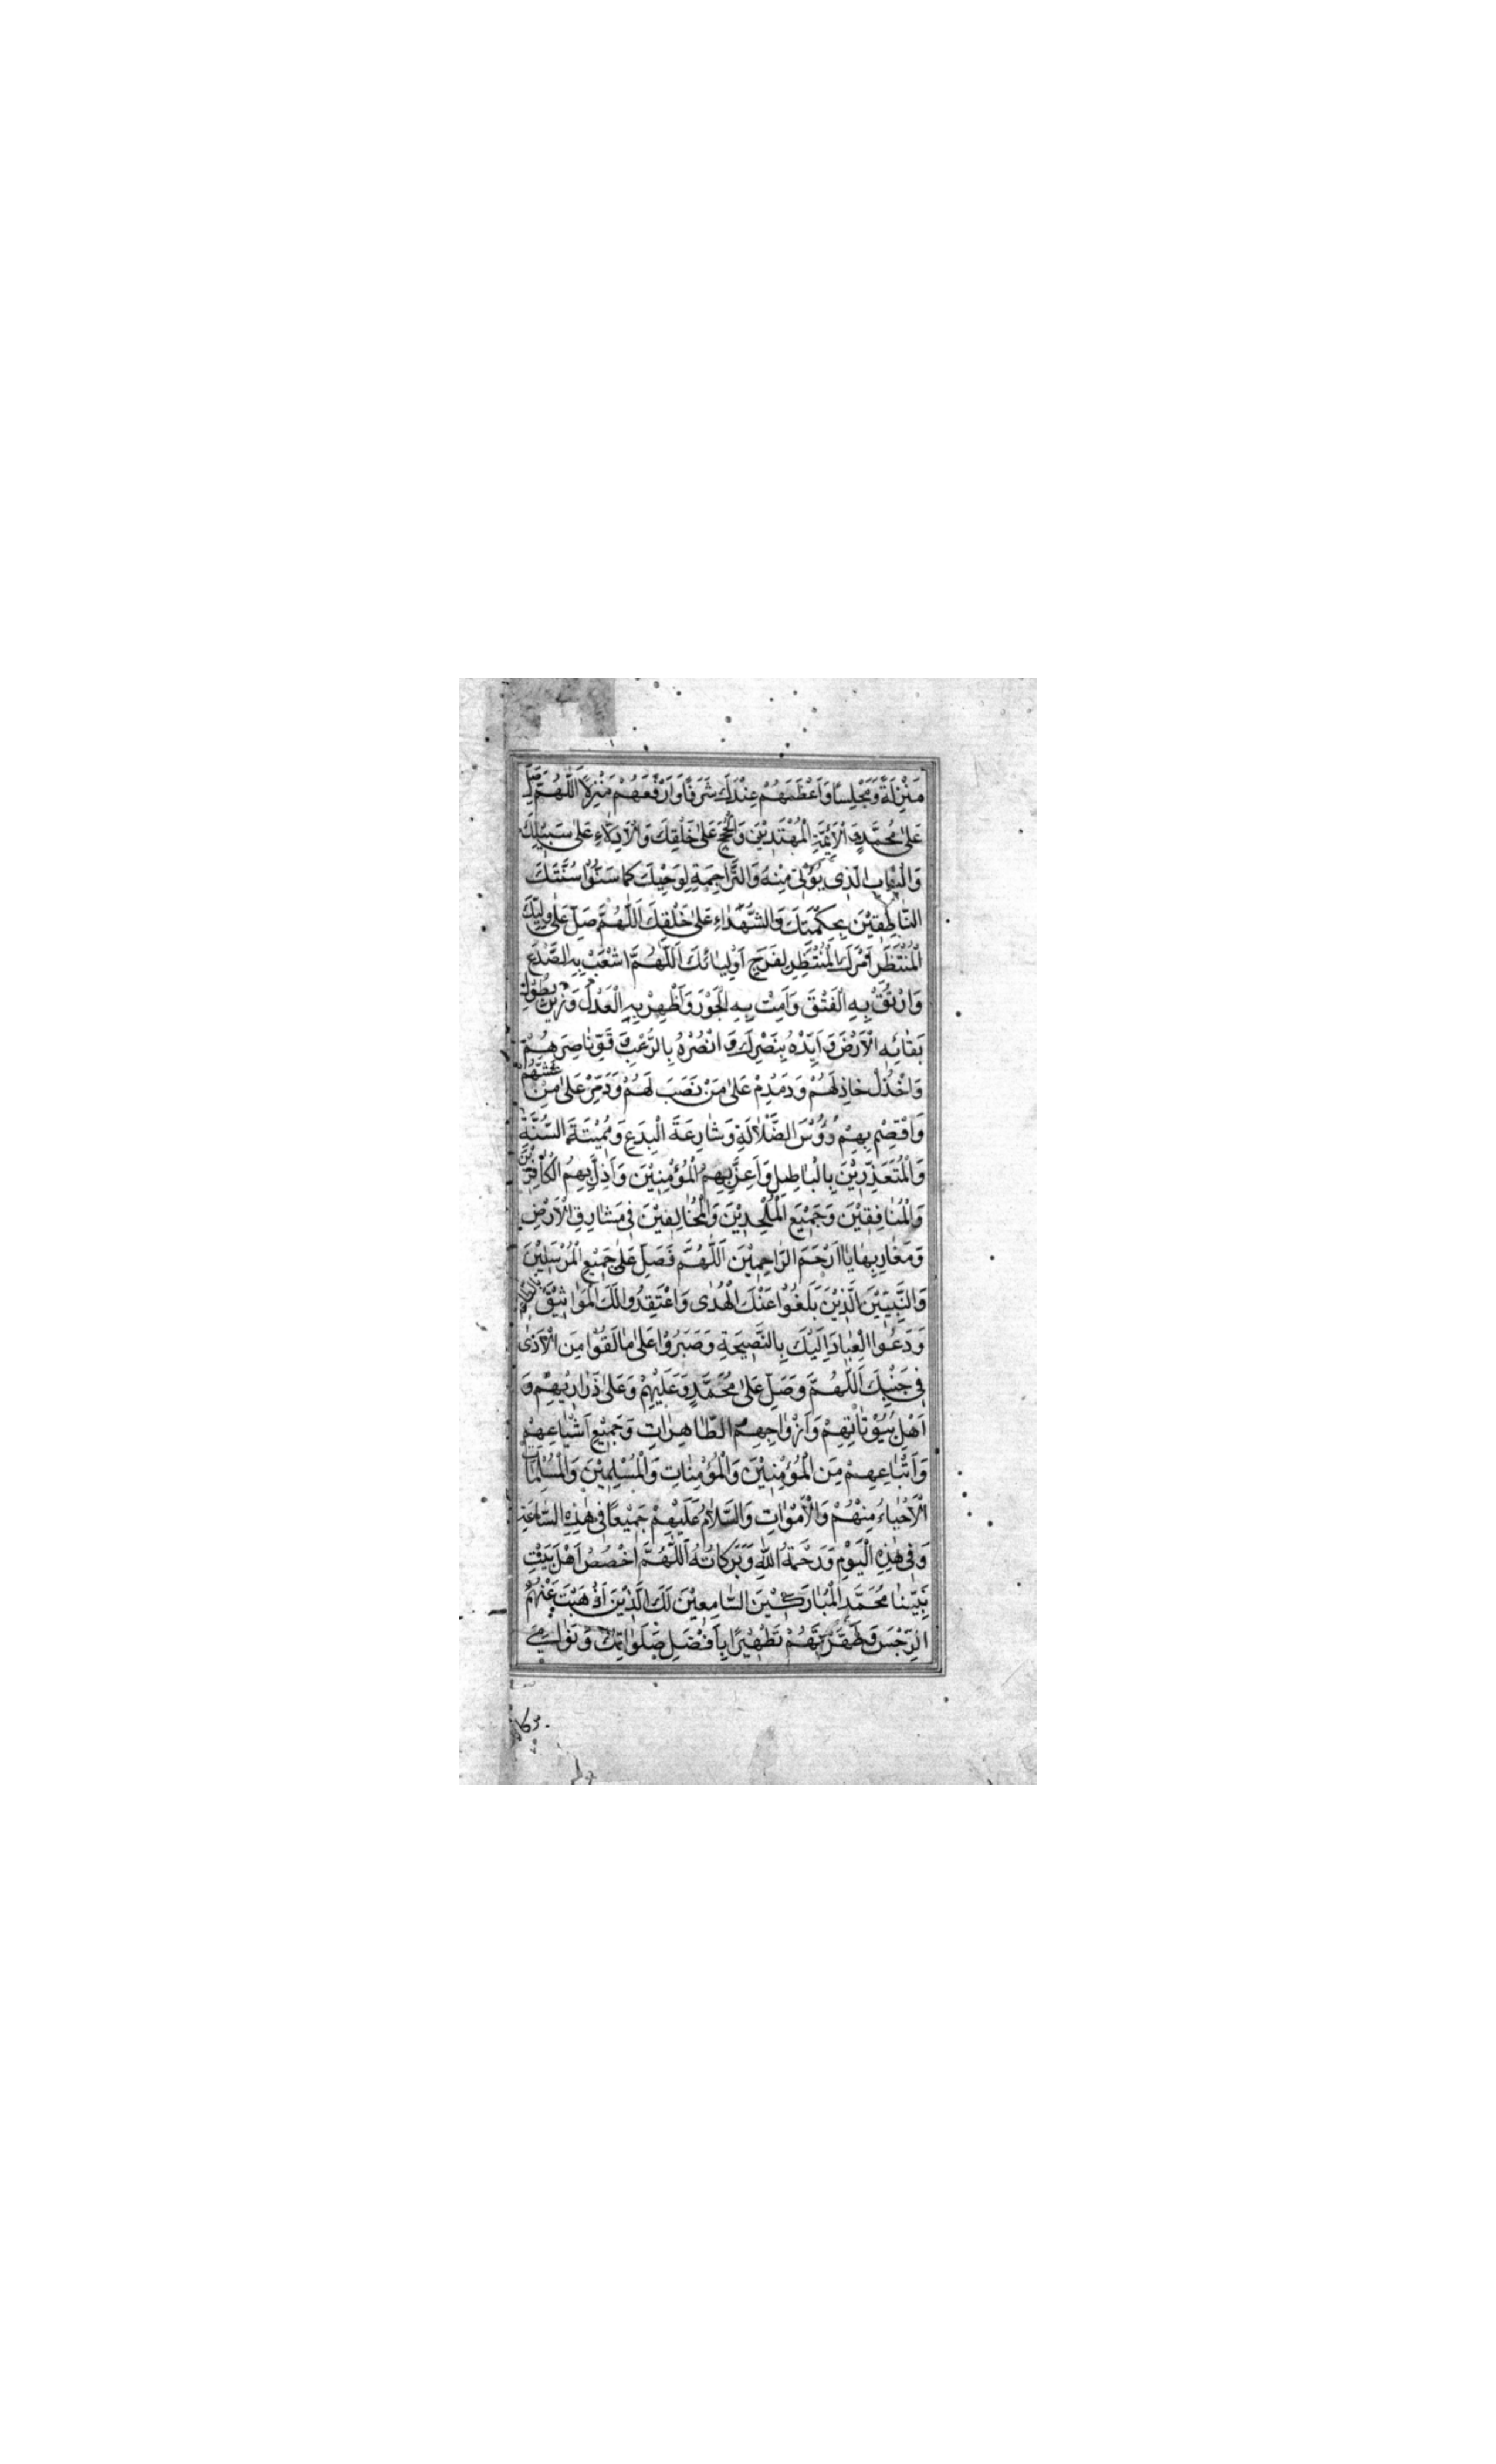 مَنْزِلَةً وَمَجْلِسًا وَاَعْظَمَهُمْ عِنْدَكَ شَرَفًا وَاَرْفَعَهُمْ مَنْزِلًا اَللّٰهُمَّ صَلِّ
عَلٰى مُحَمَّدٍ وَالْاَئِمَّةِ الْمُهْتَدِيْنَ وَالْحُجَجِ عَلٰى خَلْقِكَ وَالْاَدِلَّاءِ عَلٰى سَبِيْلِكَ
وَالْبَابِ الَّذِى يُؤْتٰى مِنْهُ وَالتَّرَاجِمَةِ لِوَحْيِكَ كَمَا سَنُّوْا سُنَّتَكَ
النَّاطِقِيْنَ بِحِكْمَتِكَ وَالشُّهَدَاءِ عَلٰى خَلْقِكَ اَللّٰهُمَّ صَلِّ عَلٰى وَلِيِّكَ
الْمُنْتَظِرِ اَمْرَكَ الْمُنْتَظِرِ لِفَرَجِ اَوْلِيَائِكَ اَللّٰهُمَّ اشْعَبْ بِهِ الصَّدْعَ
وَارْتُقْ بِهِ الْفَتْقَ وَاَمِتْ بِهِ الْجَوْرَ وَاَظْهِرْ بِهِ الْعَدْلَ وَزَيِّنْ بِطُوْلِ
بَقَائِهِ الْاَرْضَ وَاَيِّدْهُ بِنَصْرِكَ وَانْصُرْهُ بِالرُّعْبِ وَقَوِّ نَاصِرَهُمْ
وَاخْذُلْ خَاذِلَهُمْ وَدَمْدِمْ عَلٰى مَنْ نَصَبَ لَهُمْ وَدَمِّرْ عَلٰى مَنْ غَشَّهُمْ
وَاقْصِمْ بِهِمْ رُؤُوْسَ الضَّلَالَةِ وَشَارِعَةَ الْبِدَعِ وَمُمِيْتَةَ السُّنَّةِ
وَالْمُتَعَذِّرِيْنَ بِالْبَاطِلِ وَاَعِزَّ بِهِمُ الْمُؤْمِنِيْنَ وَاَذِلَّ بِهِمُ الْكَافِرِيْنَ
وَالْمُنَافِقِيْنَ وَجَمِيْعَ الْمُلْحِدِيْنَ وَالْمُخَالِفِيْنَ فِى مَشَارِقِ الْاَرْضِ
وَمَغَارِبِهَا يَا اَرْحَمَ الرَّاحِمِيْنَ اَللّٰهُمَّ فَصَلِّ عَلٰى جَمِيْعِ الْمُرْسَلِيْنَ
وَالنَّبِيِّيْنَ الَّذِيْنَ بَلَّغُوْا عَنْكَ الْهُدٰى وَاعْتَقَدُوا لَكَ الْمَوَاثِيْقَ بِالطَّاعَةِ
وَدَعَوُا الْعِبَادَ اِلَيْكَ بِالنَّصِيْحَةِ وَصَبَرُوْا عَلٰى مَا لَقُوْا مِنَ الْاَذٰى
فِى جَنْبِكَ اَللّٰهُمَّ وَصَلِّ عَلٰى مُحَمَّدٍ وَعَلَيْهِمْ وَعَلٰى ذَرَارِيْهِمْ وَ
اَهْلِ بُيُوْتَاتِهِمْ وَاَزْوَاجِهِمُ الطَّاهِرَاتِ وَجَمِيْعِ اَشْيَاعِهِمْ
وَاَتْبَاعِهِمْ مِنَ الْمُؤْمِنِيْنَ وَالْمُؤْمِنَاتِ وَالْمُسْلِمِيْنَ وَالْمُسْلِمَاتِ
الْاَحْيَاءِ مِنْهُمْ وَالْاَمْوَاتِ وَالسَّلَامُ عَلَيْهِمْ جَمِيْعًا فِى هٰذِهِ السَّاعَةِ
وَفِى هٰذِهِ الْيَوْمِ وَرَحْمَةُ اللّٰهِ وَبَرَكَاتُهُ اَللّٰهُمَّ اخْصُصْ اَهْلَ بَيْتِ
نَبِيِّنَا مُحَمَّدٍ الْمُبَارَكِيْنَ السَّامِعِيْنَ لَكَ الَّذِيْنَ اَذْهَبْتَ عَنْهُمُ
الرِّجْسَ وَطَهَّرْتَهُمْ تَطْهِيْرًا بِاَفْضَلِ صَلَوَاتِكَ وَنَوَامِى